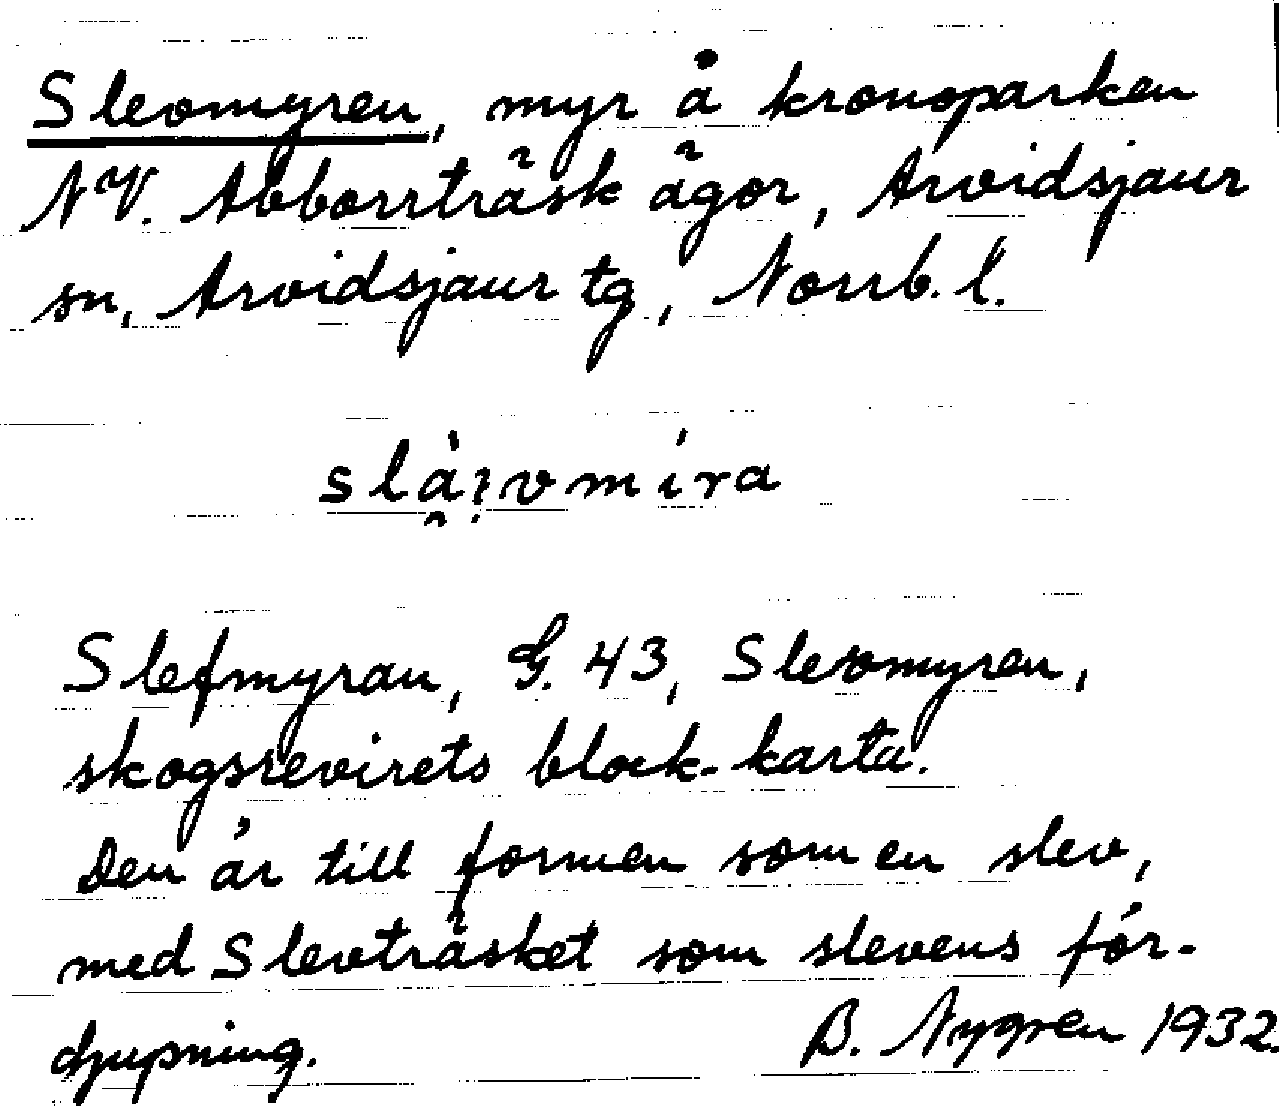 Slevmyren, myr å kronoparken
NV. Abborrträsk ägor, Arvidsjaur
sn, Arvidsjaur tg, Norrb. l.
slàivmíra
Slefmyran, G. 43, Slevmyren,
skogsrevirets block-karta.
Den är till formen som en slev,
med Slevträsket som slevens för-
djupning.
B. Nygren 1932.